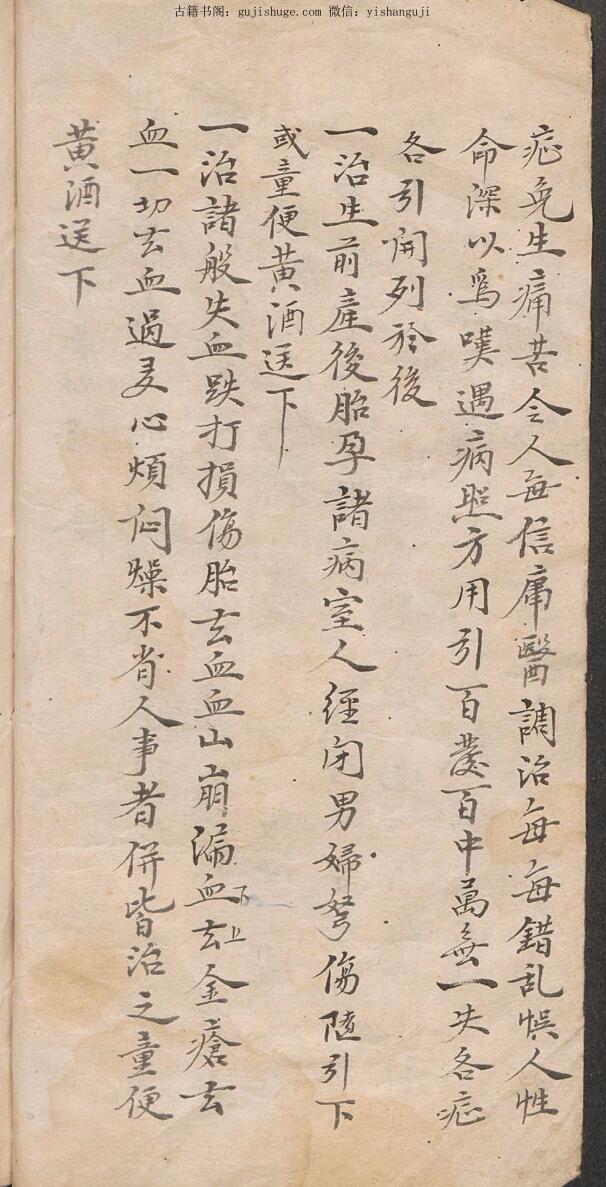 古籍书阁：gujishuge.com 微信：yishanguji
症免生痛苦令人每信庸醫調治每每錯乱悞人性
命深以爲嘆遇病照方用引百發百中萬無一失各症
各引開列於後
一治生前產後胎孕諸病室人經闭男婦努傷隨引下
或童便黄酒送下
一治諸般失血跌打損傷胎去血血山崩漏血下去上金瘡去
血一切去血過多心煩闷燥不省人事者併皆治之童便
黄酒送下